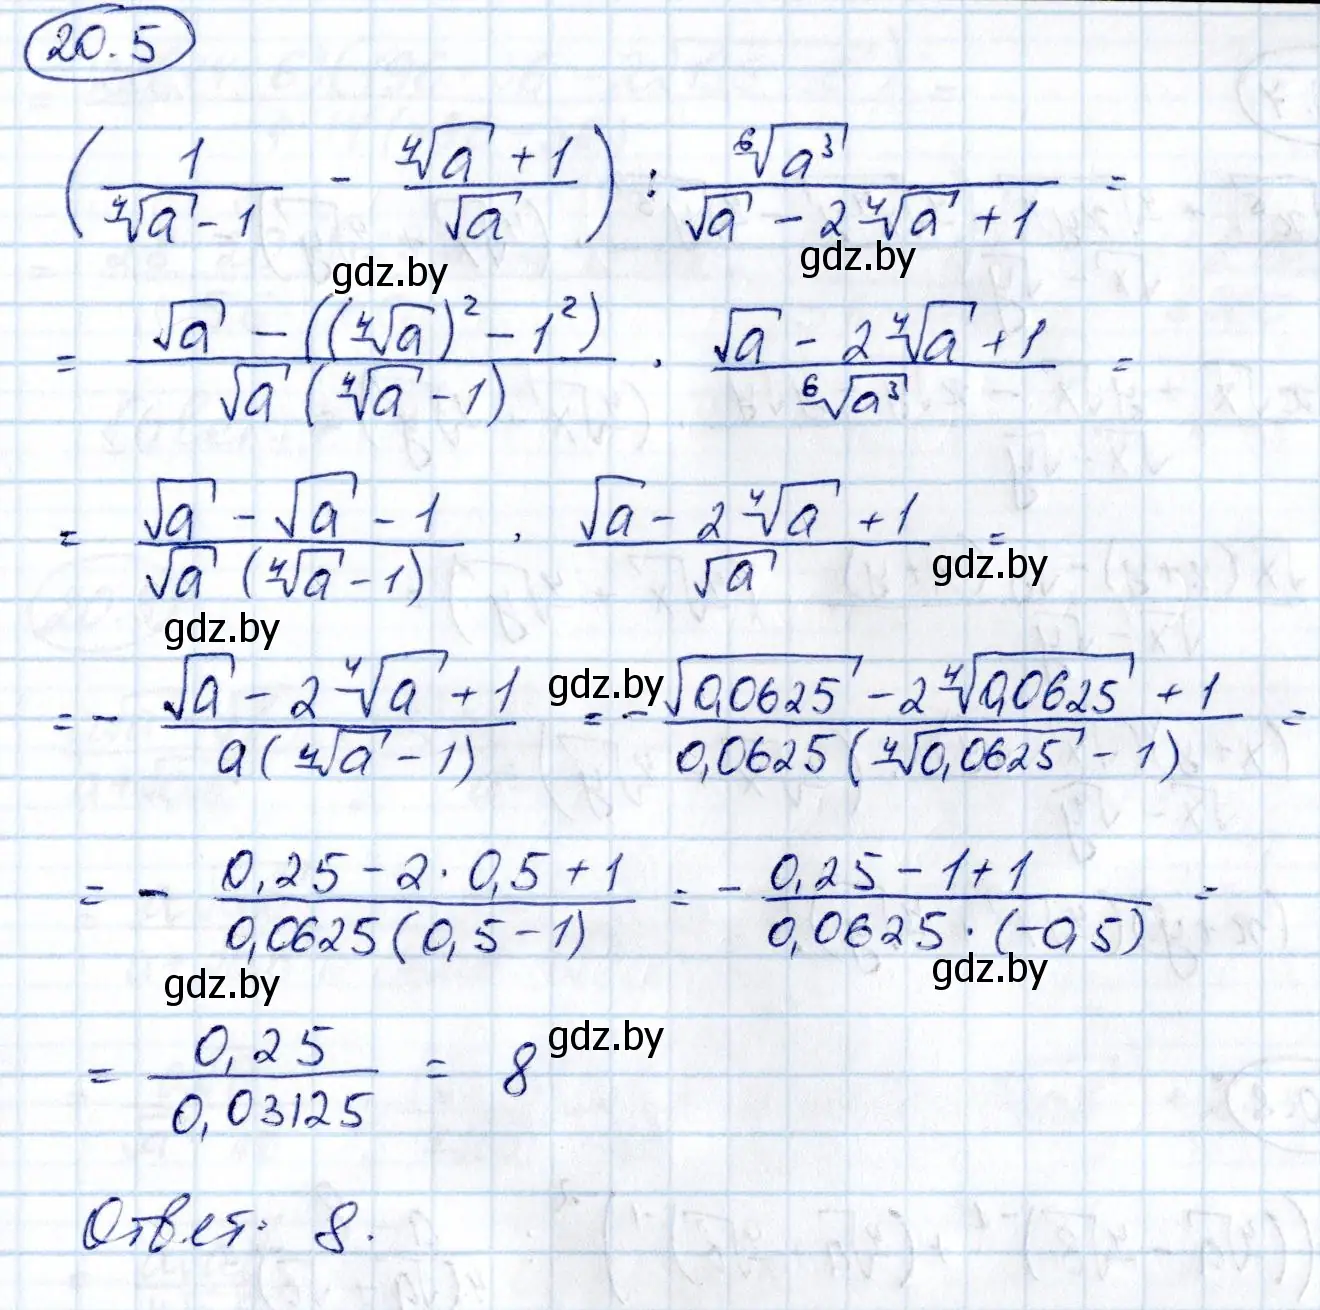 20.5
(1/(⁴√a - 1) - (⁴√a + 1)/√a) : ⁶√a³/(√a - 2⁴√a + 1) =
gdz.by gdz.by
= (√a - ((⁴√a)² - 1²))/(√a (⁴√a - 1)) · (√a - 2⁴√a + 1)/⁶√a³ =
= (√a - √a - 1)/(√a (⁴√a - 1)) · (√a - 2⁴√a + 1)/√a =
gdz.by gdz.by
= - (√a - 2⁴√a + 1)/(a(⁴√a - 1)) = - (√0,0625 - 2⁴√0,0625 + 1)/(0,0625(⁴√0,0625 - 1)) =
gdz.by
= - (0,25 - 2 · 0,5 + 1)/(0,0625(0,5 - 1)) = - (0,25 - 1 + 1)/(0,0625 · (-0,5)) =
gdz.by gdz.by
= 0,25/0,03125 = 8
gdz.by
Ответ: 8.